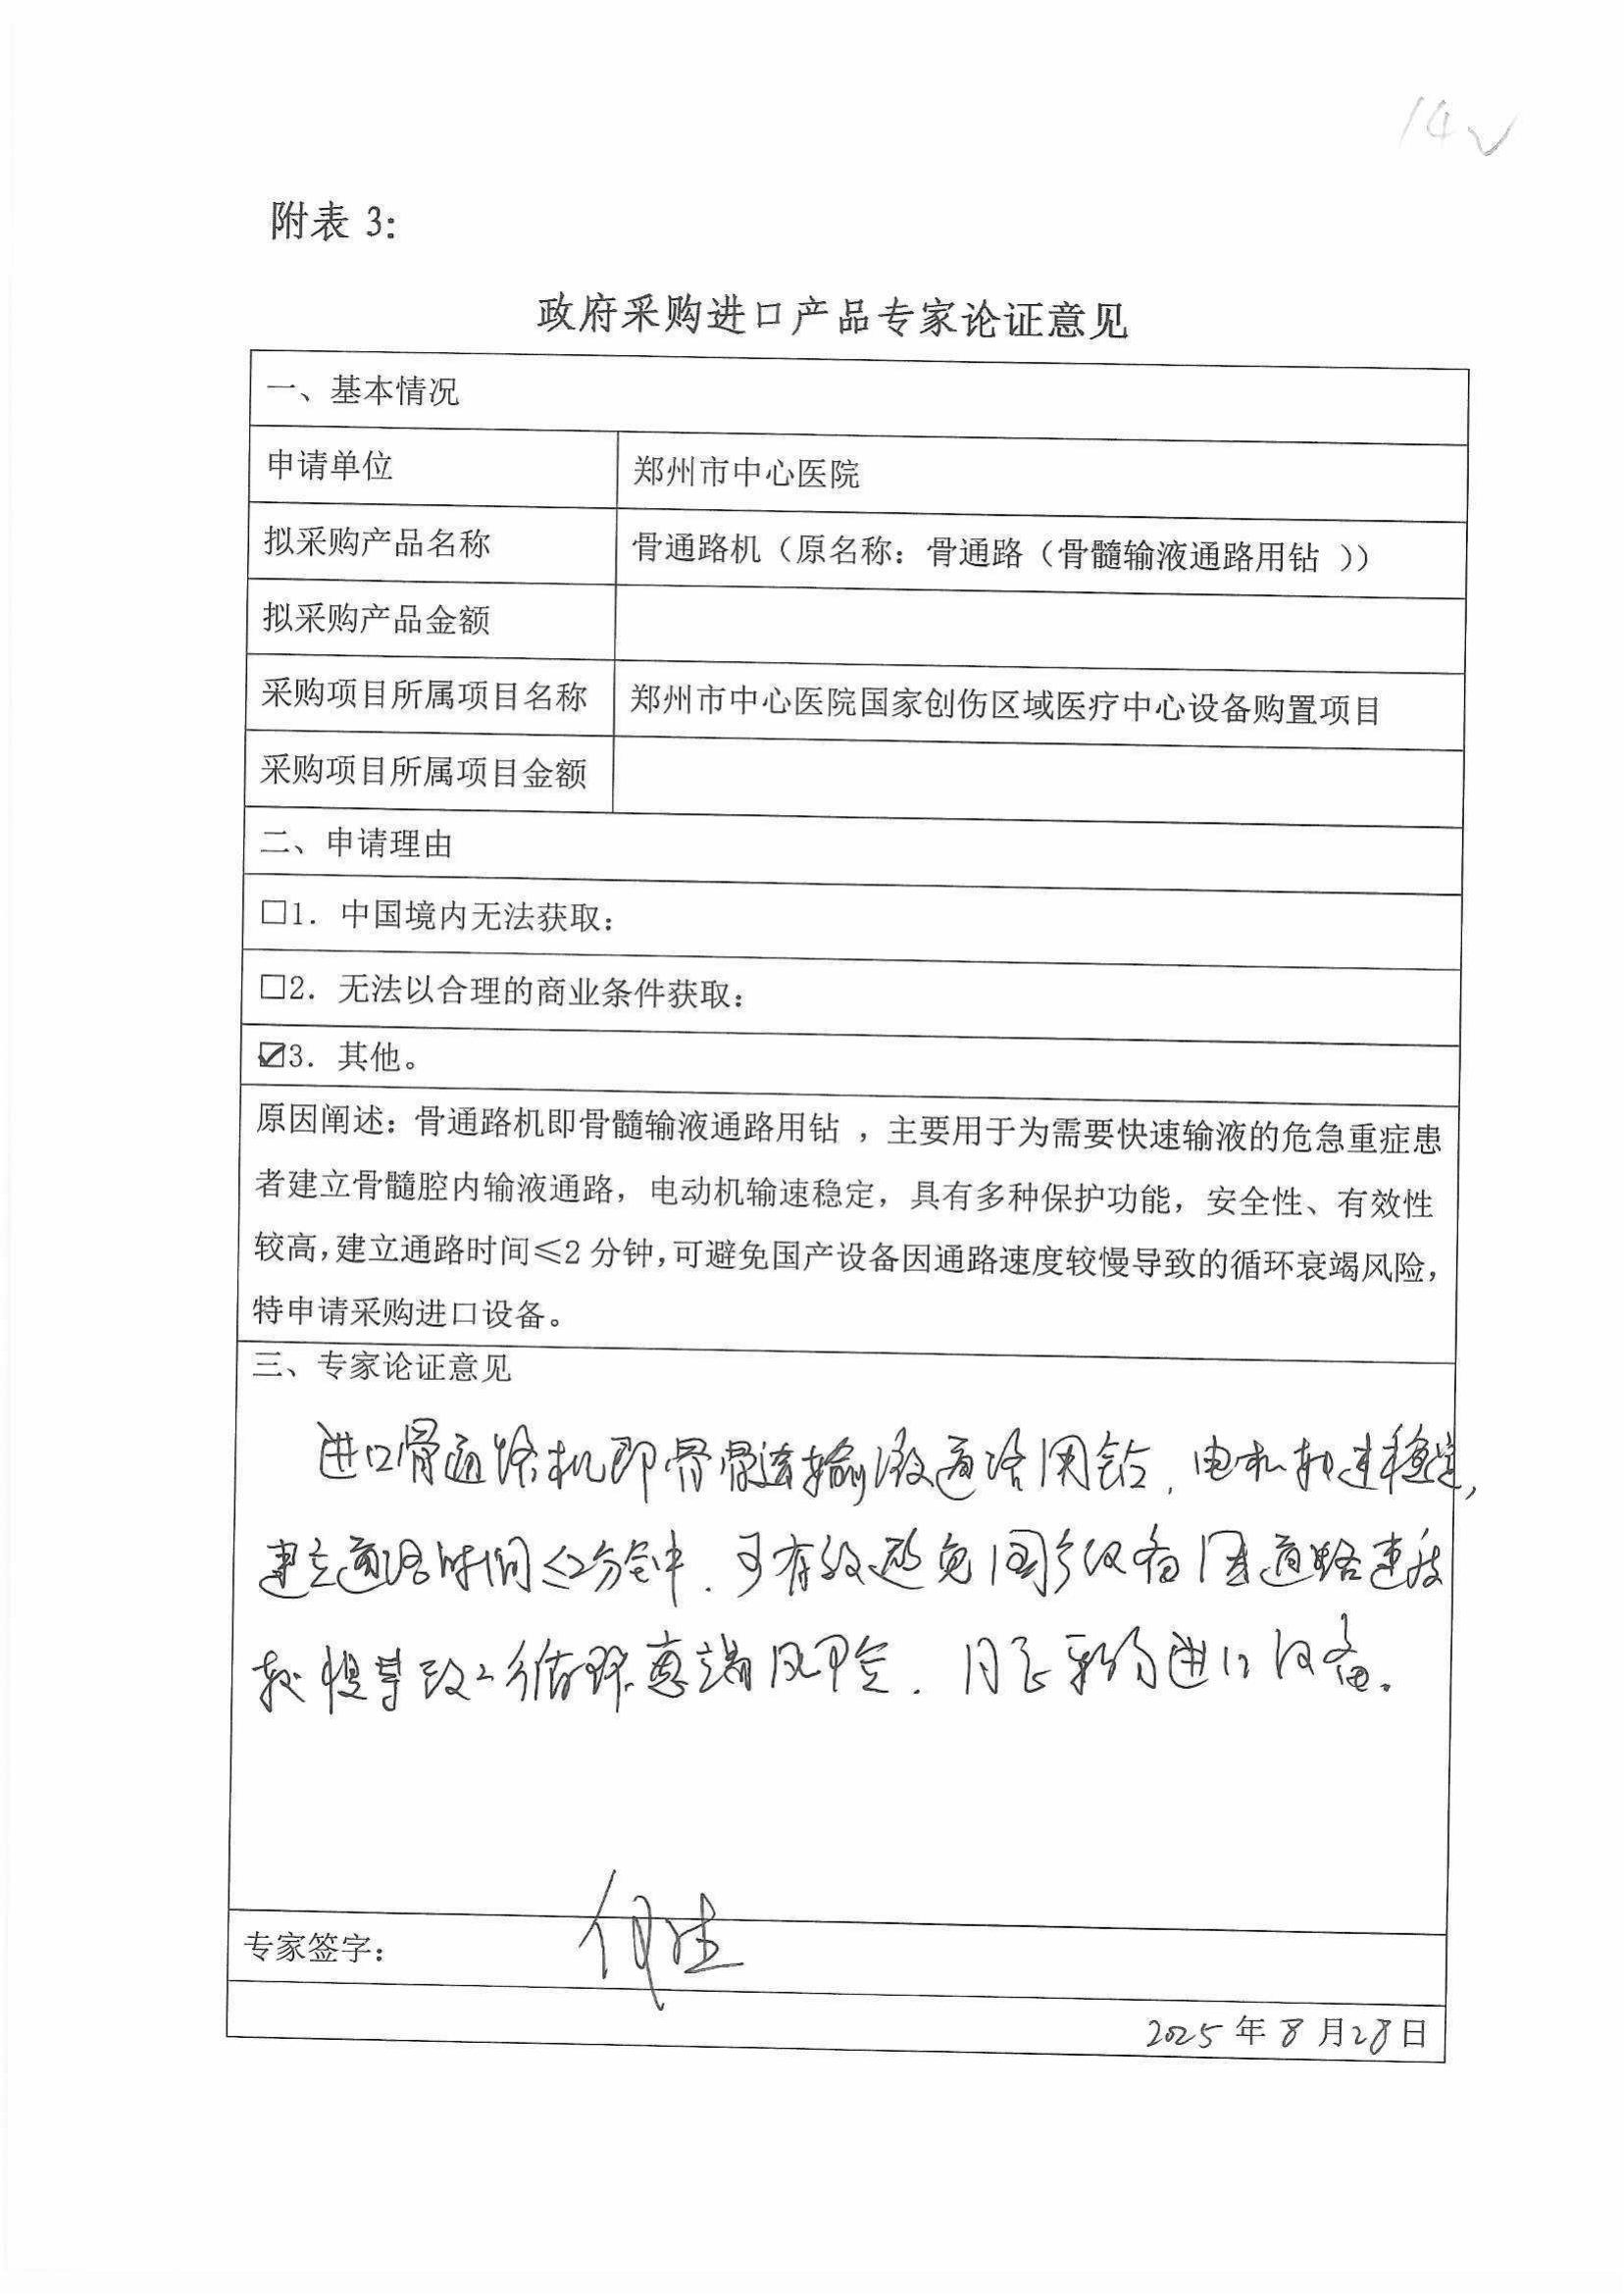 14
附表 3：
政府采购进口产品专家论证意见
一、基本情况
申请单位 郑州市中心医院
拟采购产品名称 骨通路机（原名称：骨通路（骨髓输液通路用钻 ））
拟采购产品金额
采购项目所属项目名称 郑州市中心医院国家创伤区域医疗中心设备购置项目
采购项目所属项目金额
二、申请理由
□1. 中国境内无法获取：
□2. 无法以合理的商业条件获取：
☑3. 其他。
原因阐述：骨通路机即骨髓输液通路用钻 ，主要用于为需要快速输液的危急重症患
者建立骨髓腔内输液通路，电动机输速稳定，具有多种保护功能，安全性、有效性
较高，建立通路时间≤2 分钟，可避免国产设备因通路速度较慢导致的循环衰竭风险，
特申请采购进口设备。
三、专家论证意见
进口骨通路机即骨髓输液通路用钻，电机转速稳定，
建立通路时间≤2分钟，可有效避免国产设备因通路速度
较慢导致的循环衰竭风险，同意采购进口设备。
专家签字：
2025 年 8 月 28 日